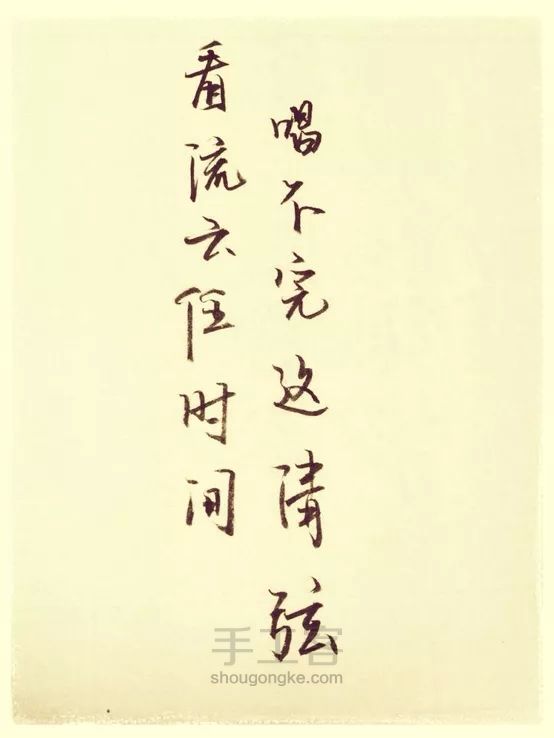 唱不完这清弦
看流云任时间
手工客
shougongke.com